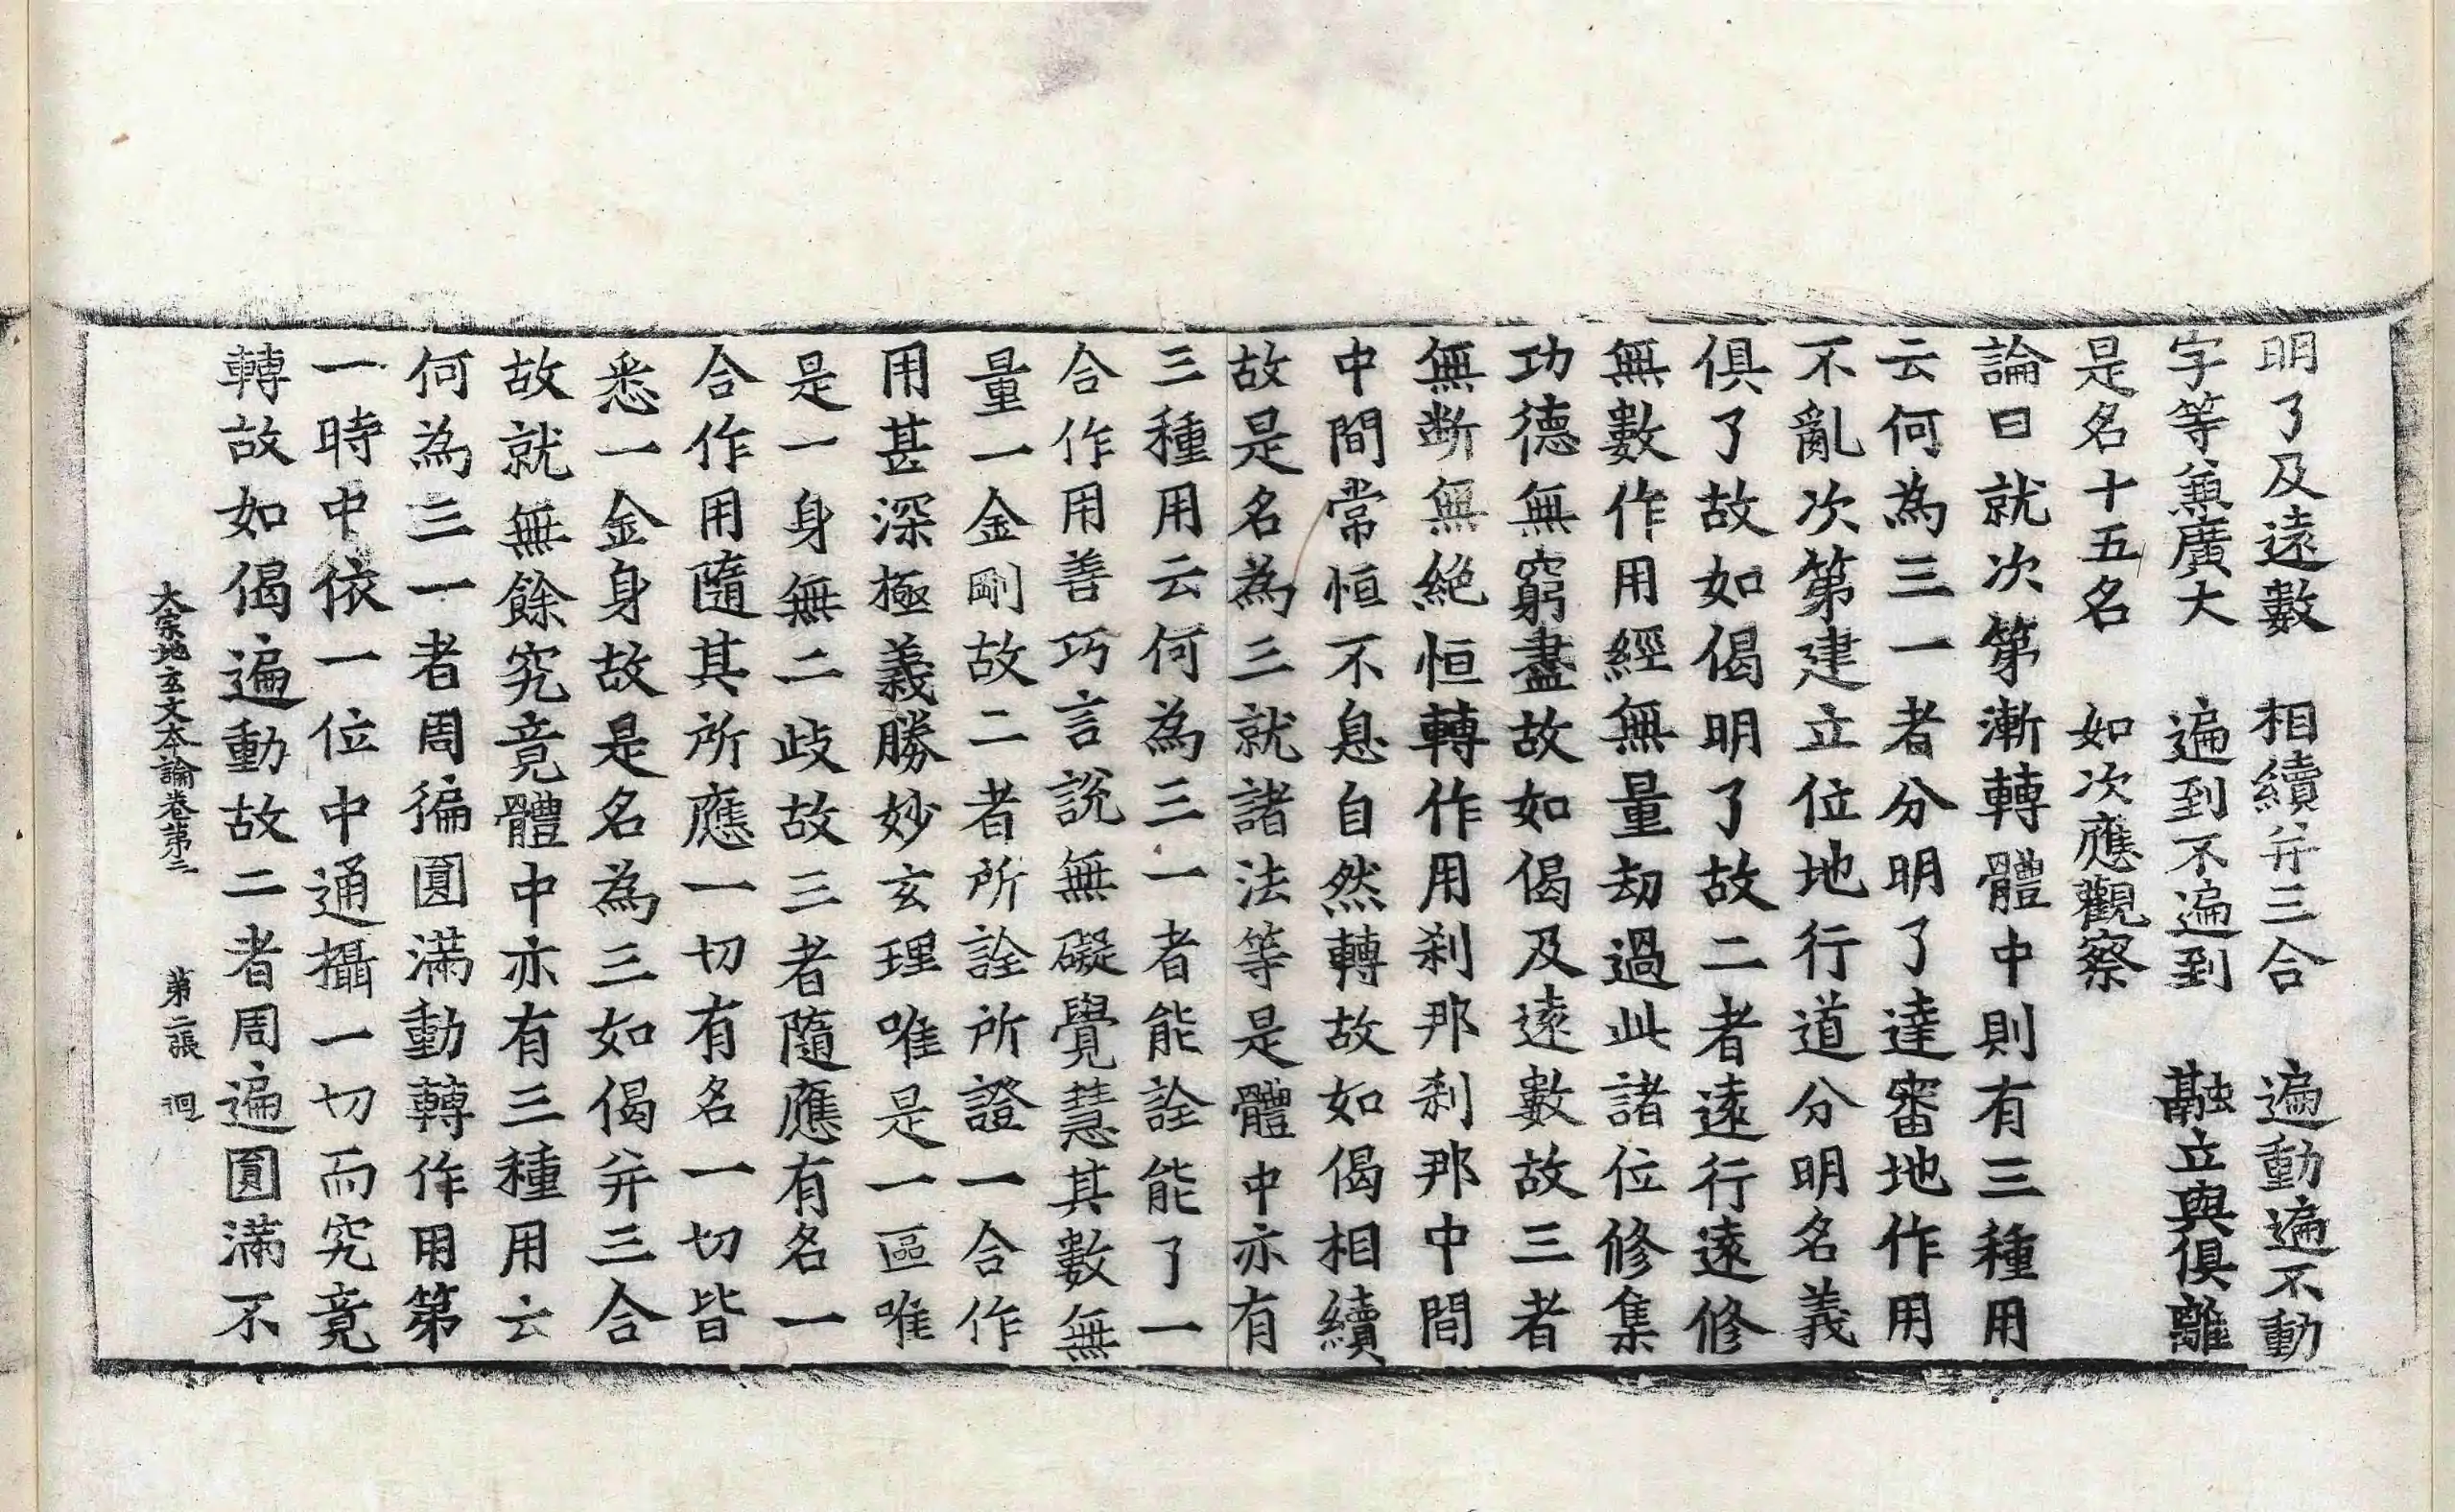 明了及遠數　相續并三合　遍動遍不動
字等兼廣大　遍到不遍到　融立與俱離
是名十五名　如次應觀察
論曰就次第漸轉體中則有三種用
云何為三一者分明了達審地作用
不亂次第建立位地行道分明名義
俱了故如偈明了故二者遠行遠修
無數作用經無量劫過此諸位修集
功德無窮盡故如偈及遠數故三者
無斷無絕恒轉作用剎那剎那中間
中間常恒不息自然轉故如偈相續
故是名為三就諸法等是體中亦有
三種用云何為三一者能詮能了一
合作用善巧言說無礙覺慧其數無
量一金剛故二者所詮所證一合作
用甚深極義勝妙玄理唯是一區唯
是一身無二歧故三者隨應有名一
合作用隨其所應一切有名一切皆
悉一金身故是名為三如偈并三合
故就無餘究竟體中亦有三種用云
何為三一者周徧圓滿動轉作用第
一時中依一位中通攝一切而究竟
轉故如偈遍動故二者周遍圓滿不
大宗地玄文本論卷第二　第二張　迴